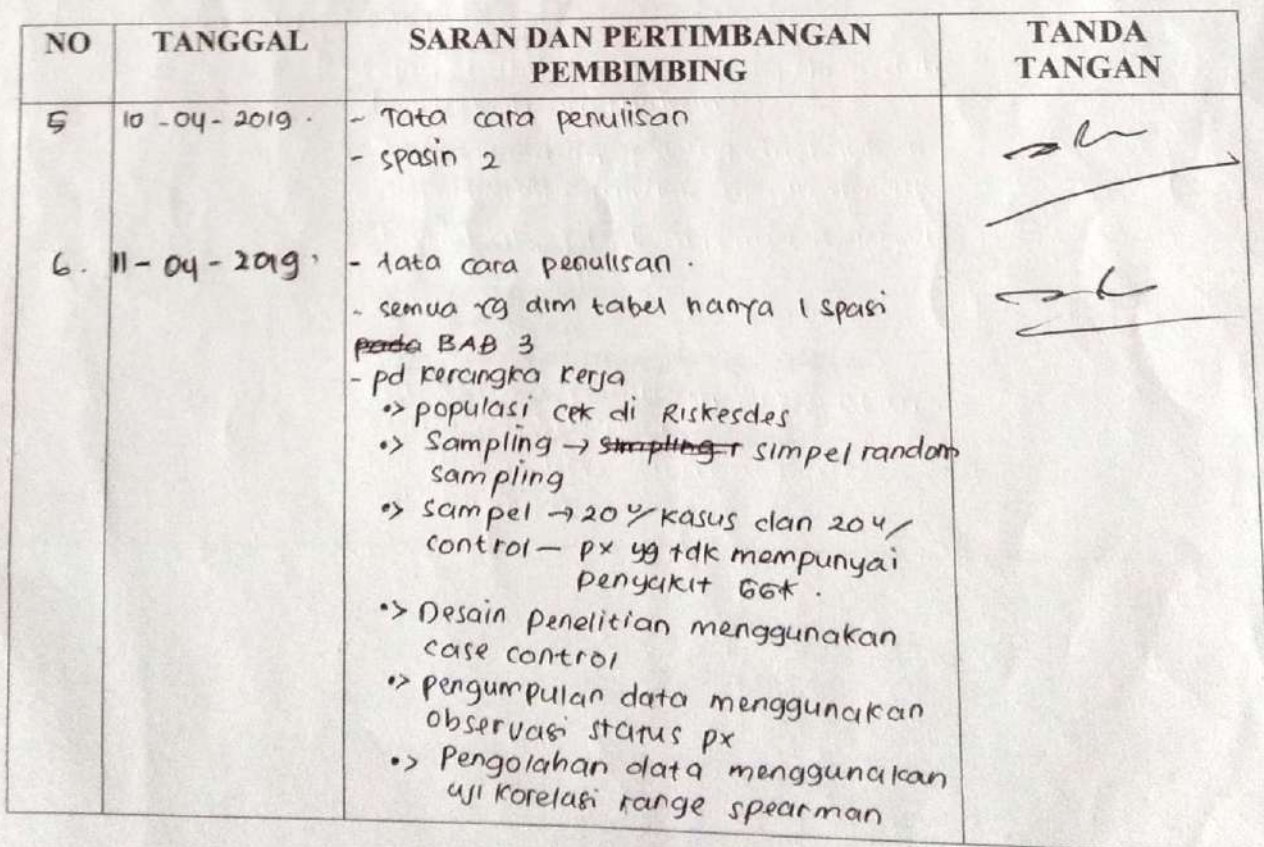 NO TANGGAL SARAN DAN PERTIMBANGAN PEMBIMBING TANDA TANGAN
5 10-04-2019. - Tata cara penulisan
- spasin 2
6. 11-04-2019. - tata cara penulisan.
- semua yg dlm tabel hanya 1 spasi
pada BAB 3
- pd kerangka kerja
•> populasi cek di Riskesdes
•> Sampling → simpel random
sampling
•> sampel → 20 kasus dan 20
control - px yg tdk mempunyai
penyakit GGK.
•> Desain penelitian menggunakan
case control
•> pengumpulan data menggunakan
observasi status px
•> Pengolahan data menggunakan
uji korelasi range spearman